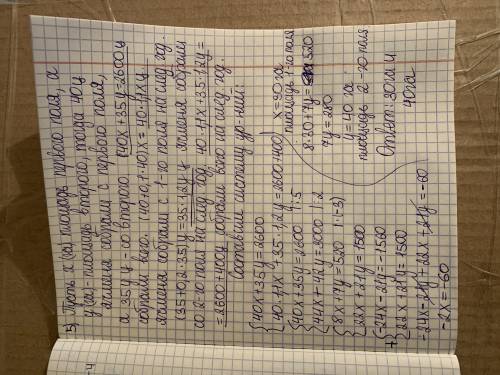 5) Пусть x (га) площадь первого поля, а
y (га) - площадь второго, тогда 40y
ячменя собрали с первого поля,
а 35y - со второго. (40x+35y)=2600y
собрали всего. (40+0,1·40)x = 40·1,1x y
ячменя собрали с 1-го поля на след. год.
(35+0,2·35)y = 35·1,2y y ячменя собрали
со 2-го поля на след. год. 40·1,1x+35·1,2y=
=2600+400y собрали всего на след. год.
Составим систему ур-ний:
{40x+35y=2600
40·1,1x+35·1,2y=2600+400
{40x+35y=2600 |:5
44x+42y=3000 |:2
{8x+7y=520 |·(-3)
22x+21y=1500
+{-24x-21y=-1560
22x+21y=1500
-24x-21y+22x+21y=-60
-2x=-60
x=30 га
площадь 1-го поля
8·30+7y=520
7y=280
y=40 га
площадь 2-го поля
Ответ: 30га и
40га
-4